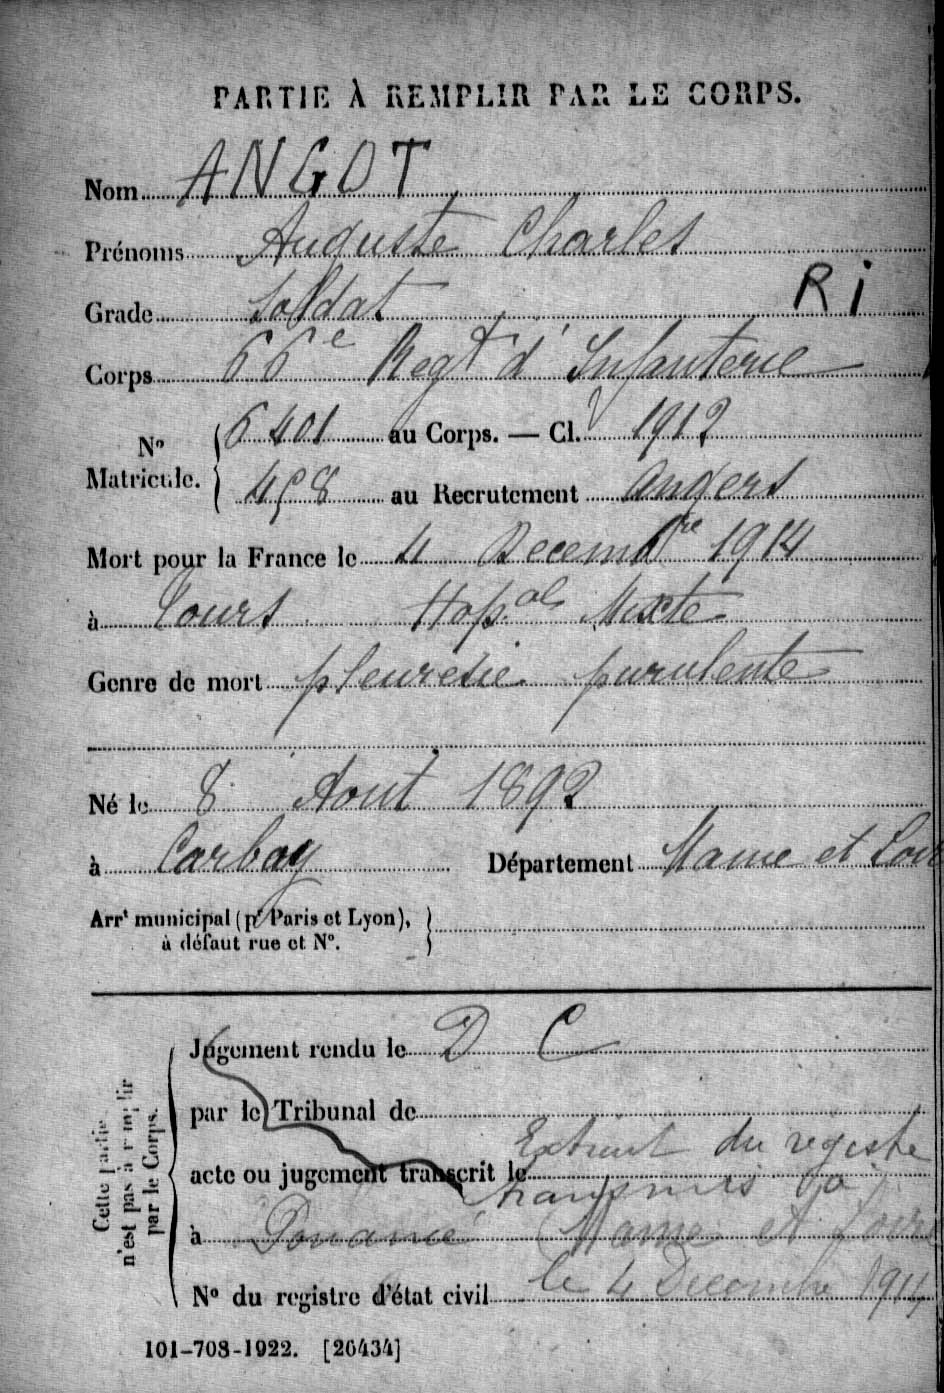 PARTIE À REMPLIR PAR LE CORPS.
Nom ANGOT
Prénoms Auguste Charles
Grade Soldat
R i
Corps 66e Regt d'Infanterie
No Matricule. { 6401 au Corps. — Cl. 1912
458 au Recrutement Angers
Mort pour la France le 4 Decembre 1914
à Tours Hopal Mixte
Genre de mort pleuresie purulente
Né le 8 Aout 1892
à Carbay Département Maine et Loire
Arrt municipal (pr Paris et Lyon), à défaut rue et No. }
Cette partie n'est pas à remplir par le Corps.
Jugement rendu le D C
par le Tribunal de
Extrait du registre
acte ou jugement transcrit le
transmis à
à Pouancé (Maine et Loire
le 4 Decembre 1914
No du registre d'état civil
101-708-1922. [26434]